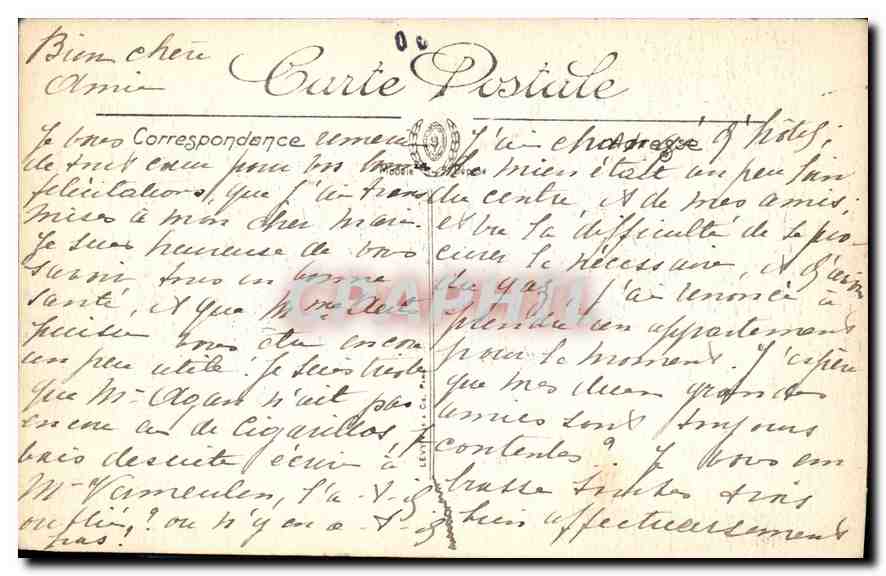 Bien chère
Amie
Carte Postale
Correspondance
Adresse
Je vous remercie
de tout cœur pour vos bonnes
félicitations, que j'ai trans
mises à mon cher mari.
Je suis heureuse de vous
savoir tous en bonne
santé, et que Mme
puisse vous être encore
un peu utile! Je suis triste
que Mr Agan n'ait pas
encore eu de cigarillos, je
vais de suite écrire à
Mr Vermeulen, l'a-t-il
oublié? ou n'y en a-t-il
pas!
J'ai changé d'hôtel,
le mien était un peu loin
du centre, et de mes amis,
et vu la difficulté de se pro-
curer le nécessaire, et d'avoir
du gaz, j'ai renoncé à
prendre un appartement
pour le moment. J'espère
que mes deux grandes
amies sont toujours
contentes? Je vous em
brasse toutes trois
bien affectueusement
LÉVY & Cie
CPAPHIL